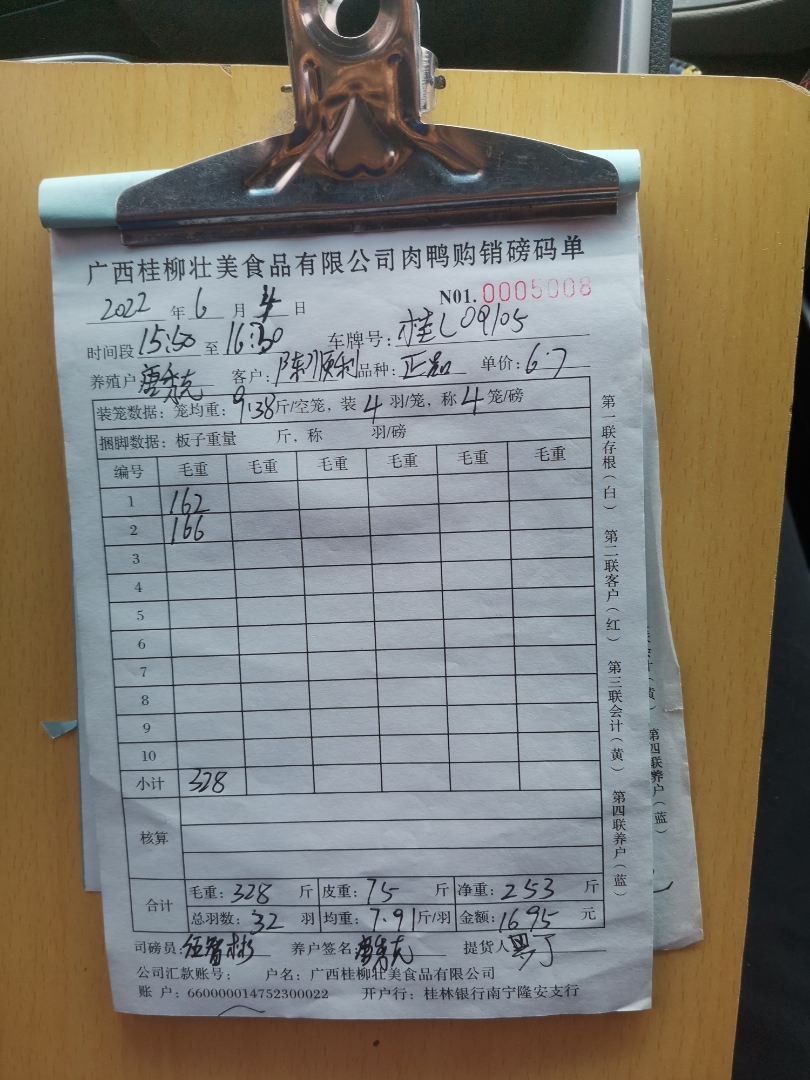 广西桂柳壮美食品有限公司肉鸭购销磅码单
2022 年 6 月 4 日 N01. 0005008
时间段 15:50 至 16:30 车牌号: 桂L09105
养殖户 客户: 陈顺利 品种: 正品 单价: 6.7
装笼数据: 笼均重: 9.38 斤/空笼, 装 4 羽/笼, 称 4 笼/磅
捆脚数据: 板子重量 斤, 称 羽/磅
编号 毛重 毛重 毛重 毛重 毛重 毛重
1 162
2 166
3
4
5
6
7
8
9
10
小计 328
核算
合计 毛重: 328 斤 皮重: 75 斤 净重: 253 斤
总羽数: 32 羽 均重: 7.91 斤/羽 金额: 1695 元
司磅员: 养户签名: 提货人
公司汇款账号: 户名: 广西桂柳壮美食品有限公司
账 户: 660000014752300022 开户行: 桂林银行南宁隆安支行
第一联存根(白) 第二联客户(红) 第三联会计(黄) 第四联养户(蓝)
第四联养户(蓝)